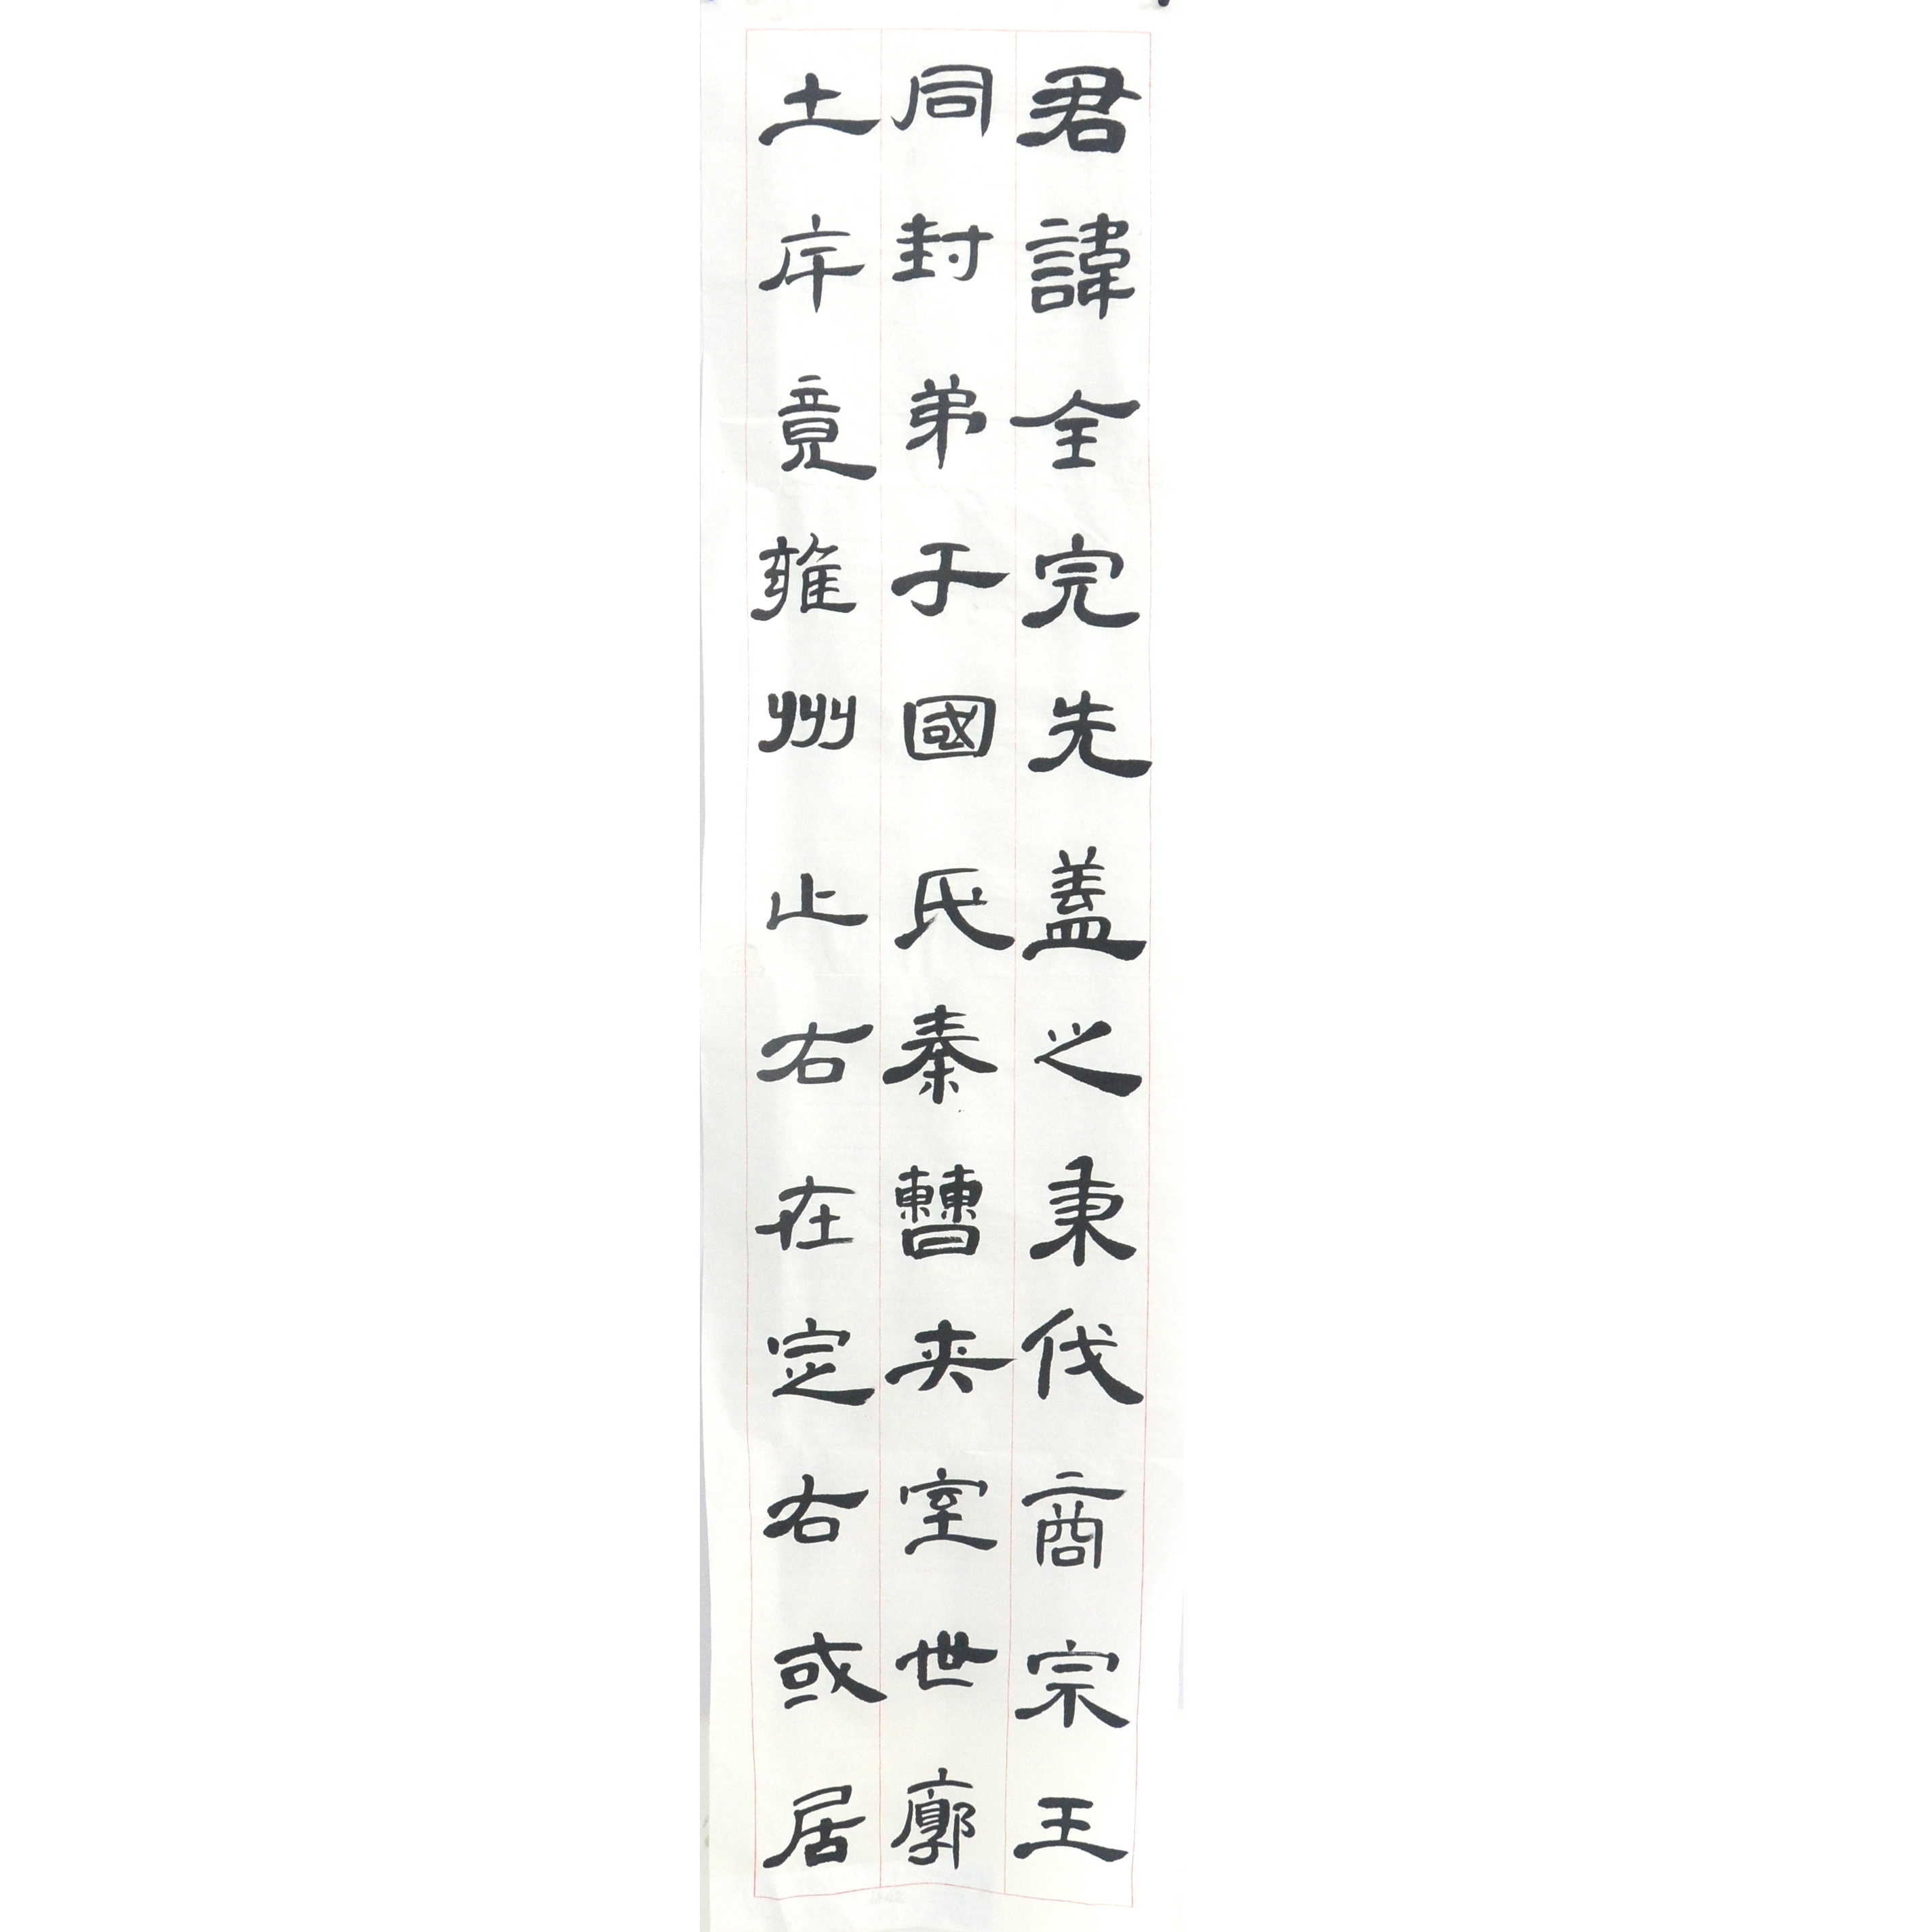 君諱全完先蓋之秉伐商宗王
同封弟于國氏秦曹夾室世廓
土序竟雍州止右在定右或居